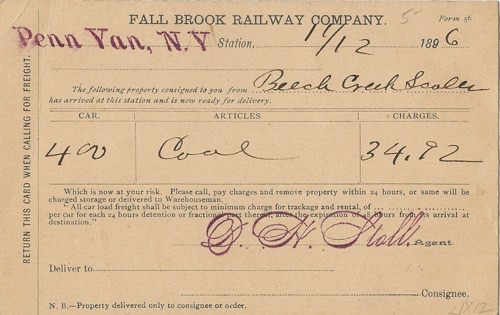 FALL BROOK RAILWAY COMPANY. 5 Form 56
Penn Yan, N.Y Station, 11/12 1896
The following property consigned to you from Beech Creek Scales
has arrived at this station and is now ready for delivery.
CAR. ARTICLES. CHARGES.
400 Coal 34.92
Which is now at your risk. Please call, pay charges and remove property within 24 hours, or same will be
charged storage or delivered to Warehouseman.
"All car load freight shall be subject to minimum charge for trackage and rental, of
per car for each 24 hours detention or fractional part thereof, after the expiration of 48 hours from its arrival at
destination."
D. H. Stoll. Agent.
Deliver to
Consignee.
N. B.—Property delivered only to consignee or order.
RETURN THIS CARD WHEN CALLING FOR FREIGHT.